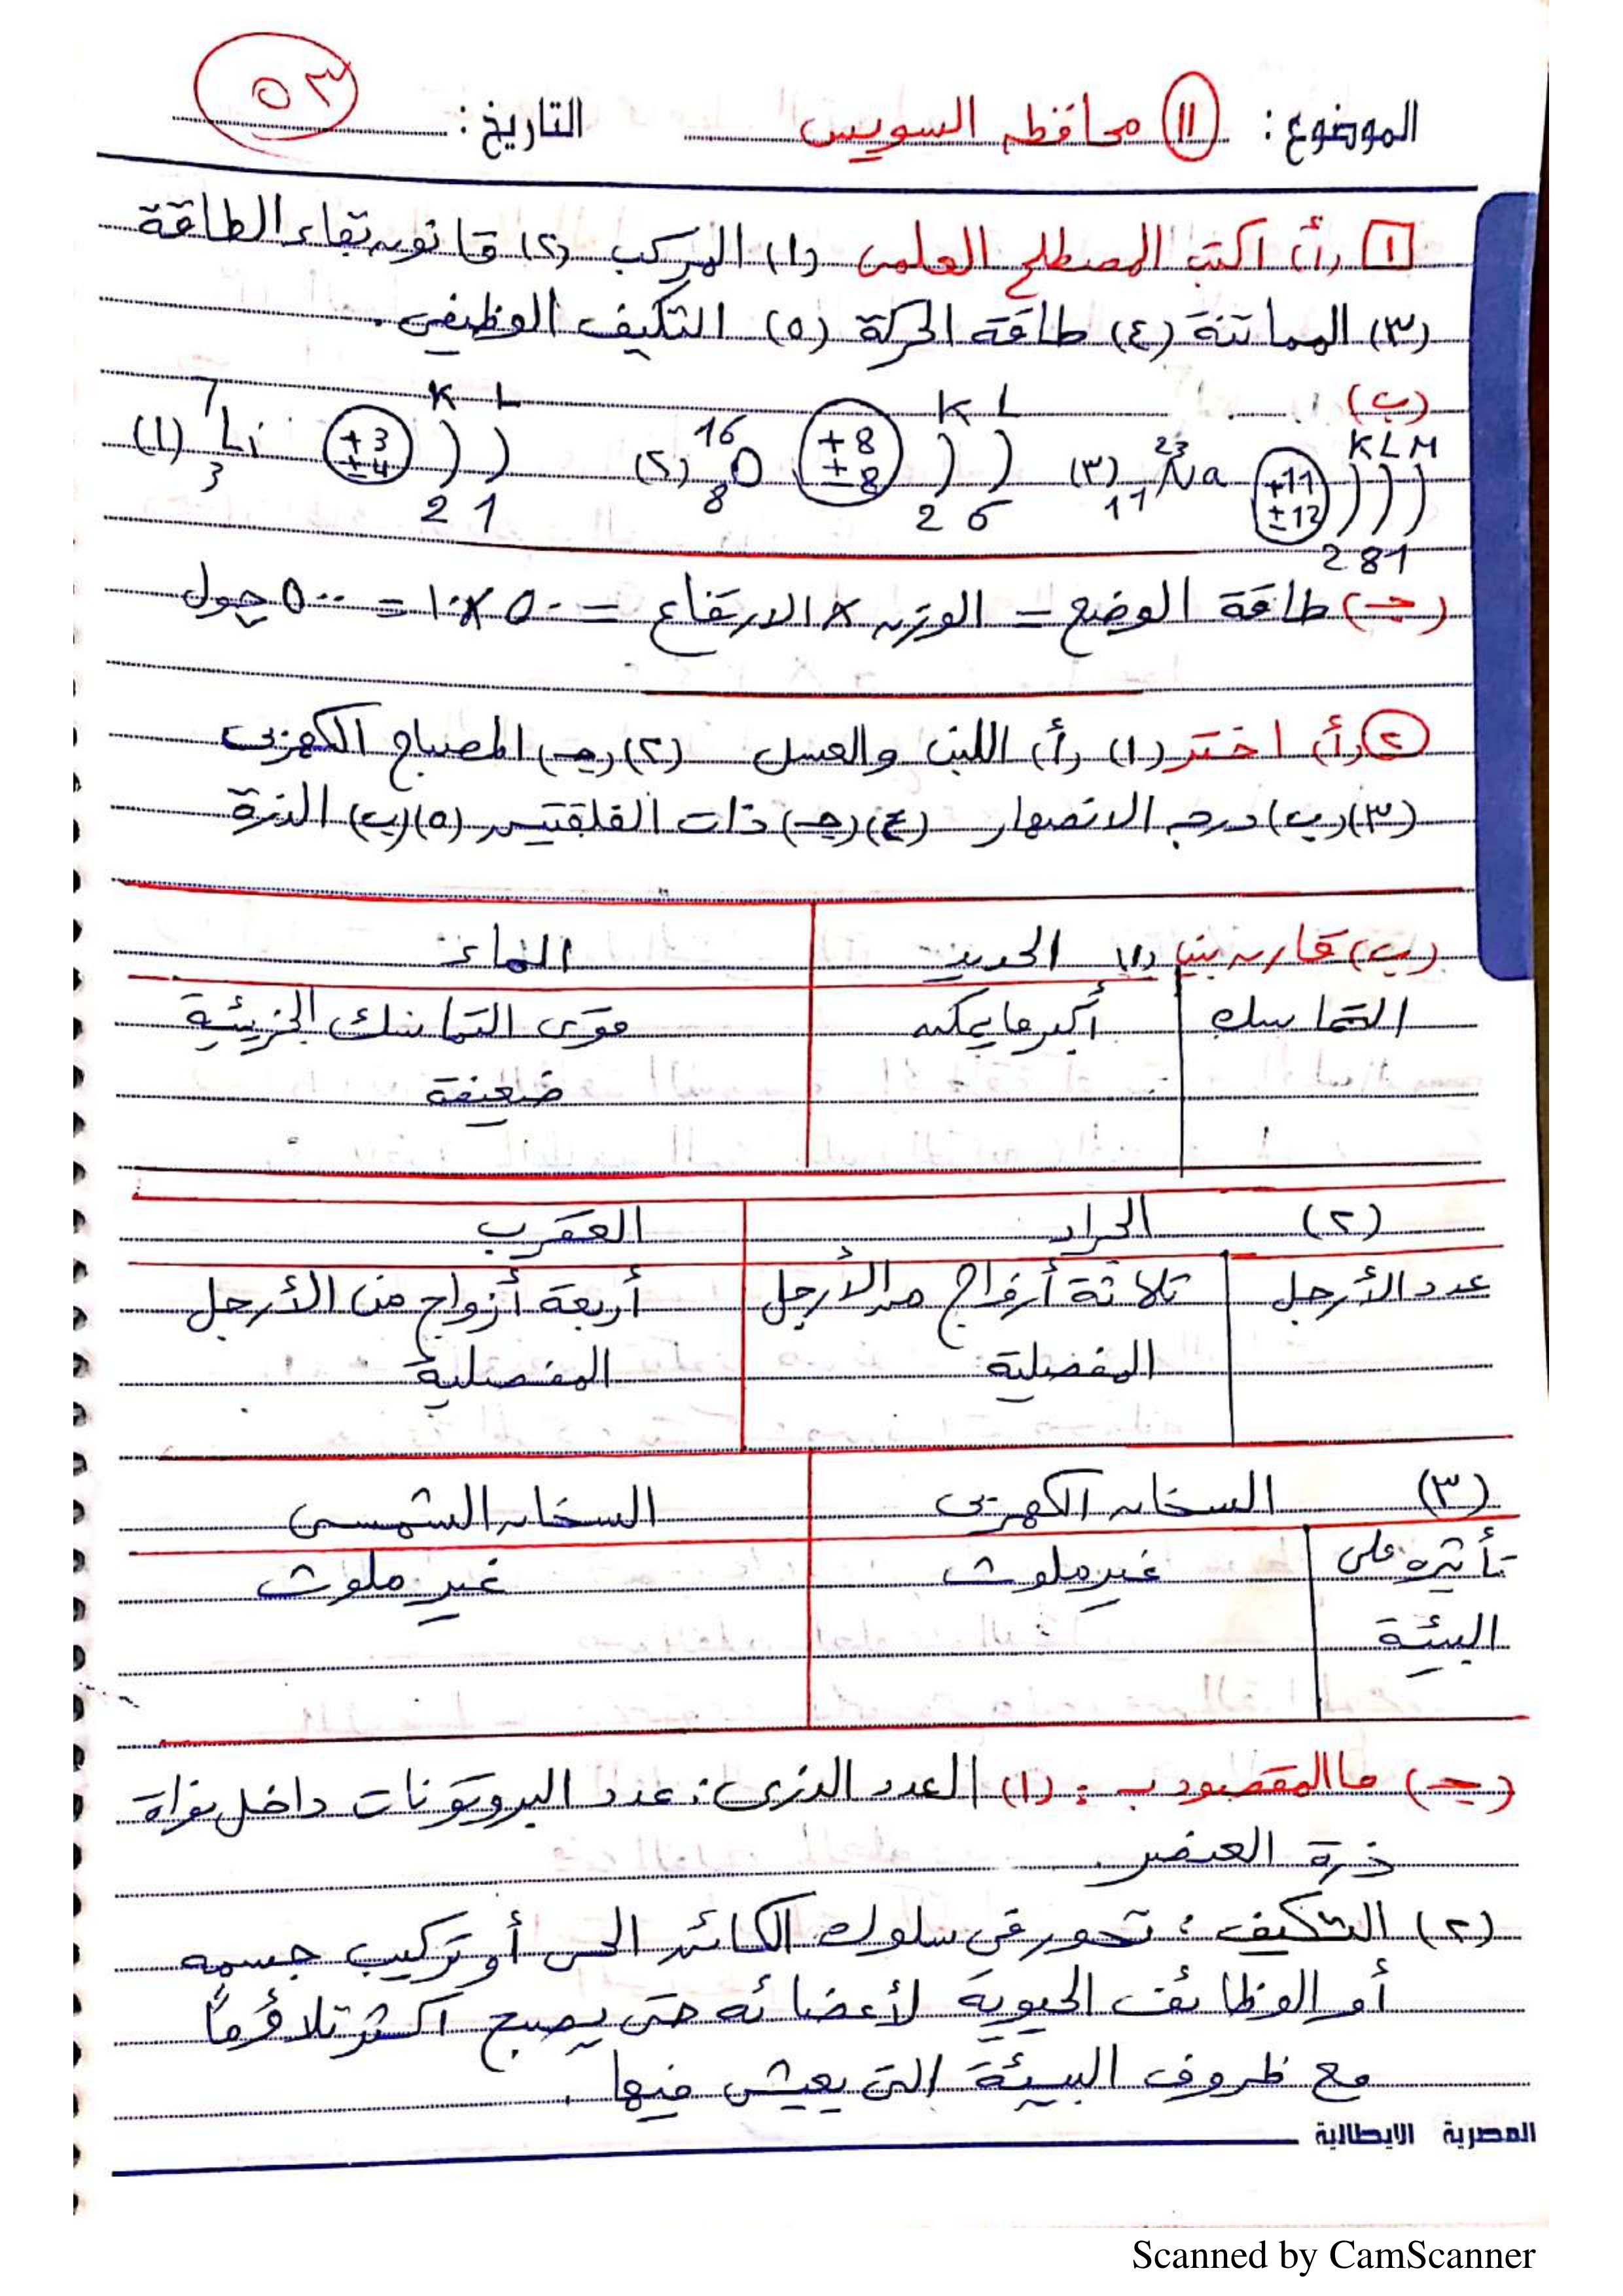 الموضوع: (١١) محافظة السويس التاريخ: ٥٣
[١] (أ) اكتب المصطلح العلمى (١) المركب (٢) قانون بقاء الطاقة
(٣) المماتنة (٤) طاقة الحركة (٥) التكيف الوظيفى.
(ب)
(١) 7 Li 3 +3 ±4 K L 2 1 (٢) 16 O 8 +8 ±8 K L 2 6 (٣) 23 Na 11 +11 ±12 K L M 2 8 1
(جـ) طاقة الوضع = الوزن × الارتفاع = ٥٠ × ١٠ = ٥٠٠ جول
(٢) (أ) اختر (١) (أ) اللبن والعسل (٢) (جـ) المصباح الكهربى
(٣) (ب) درجة الانصهار (٤) (جـ) ذات الفلقتين (٥) (ب) الذرة
(ب) قارن بين (١) الحديد الماء
التماسك أكبر ما يمكن قوى التماسك الجزيئية
ضعيفة
(٢) الجراد العقرب
عدد الأرجل ثلاثة أزواج من الأرجل أربعة أزواج من الأرجل
المفصلية المفصلية
(٣) السخان الكهربى السخان الشمسى
تأثيره على غير ملوث غير ملوث
البيئة
(جـ) ما المقصود بـ : (١) العدد الذرى : عدد البروتونات داخل نواة
ذرة العنصر.
(٢) التكيف : تحور فى سلوك الكائن الحى أو تركيب جسمه
أو الوظائف الحيوية لأعضائه حتى يصبح أكثر تلاؤماً
مع ظروف البيئة التى يعيش فيها.
المصرية الايطالية
Scanned by CamScanner